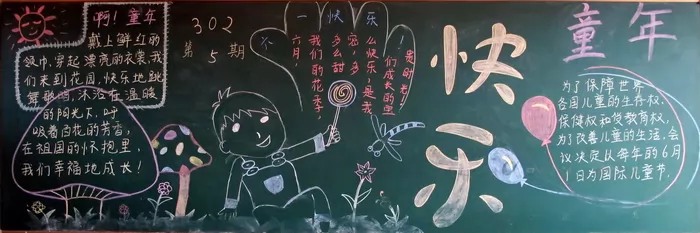 啊！童年
戴上鲜红的
领巾，穿起漂亮的衣裳我
们来到花园，快乐地跳
舞歌唱，沐浴在温暖
的阳光下，呼
吸着百花的芳香，
在祖国的怀抱里，
我们幸福地成长！
302
第5期
六一快乐
我们的花季，
多么甜
么快乐，是我
们成长的里
快乐
童年
为了保障世界
各国儿童的生存权.
保健权和受教育权，
为了改善儿童的生活，会
议决定从每年的6月
1日为国际儿童节.